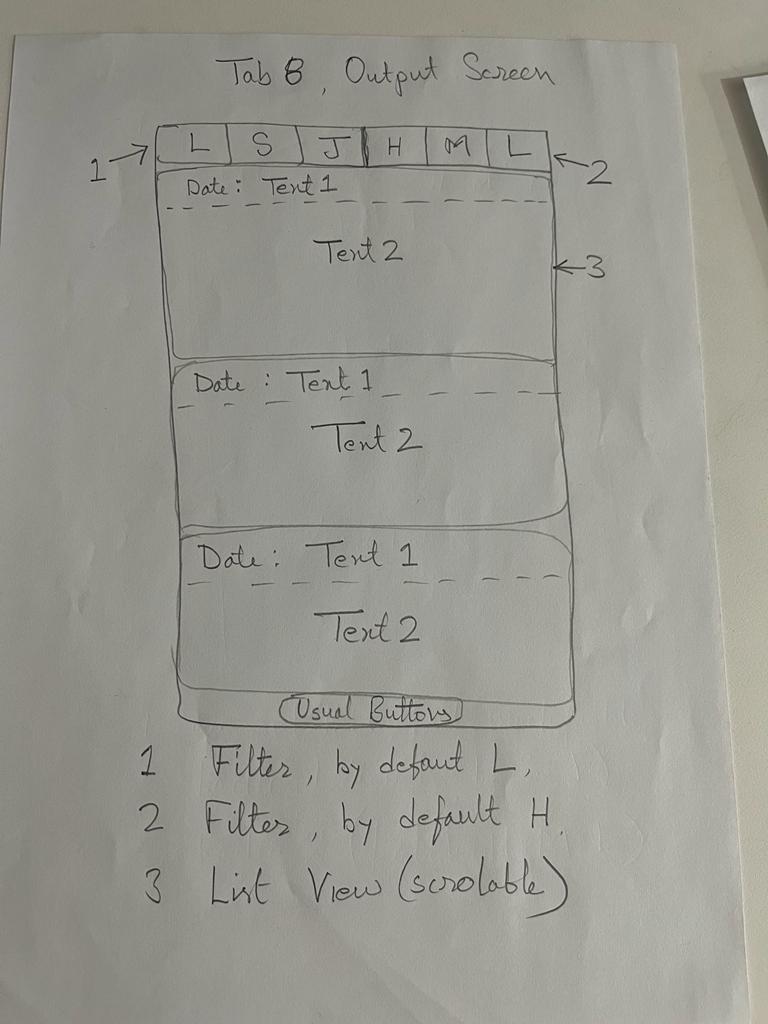 Tab 8, Output Screen
1 L S J H M L 2
Date: Text 1
Text 2
3
Date : Text 1
Text 2
Date: Text 1
Text 2
Usual Buttons
1 Filter, by defaut L,
2 Filter, by default H.
3 List View (scrolable)